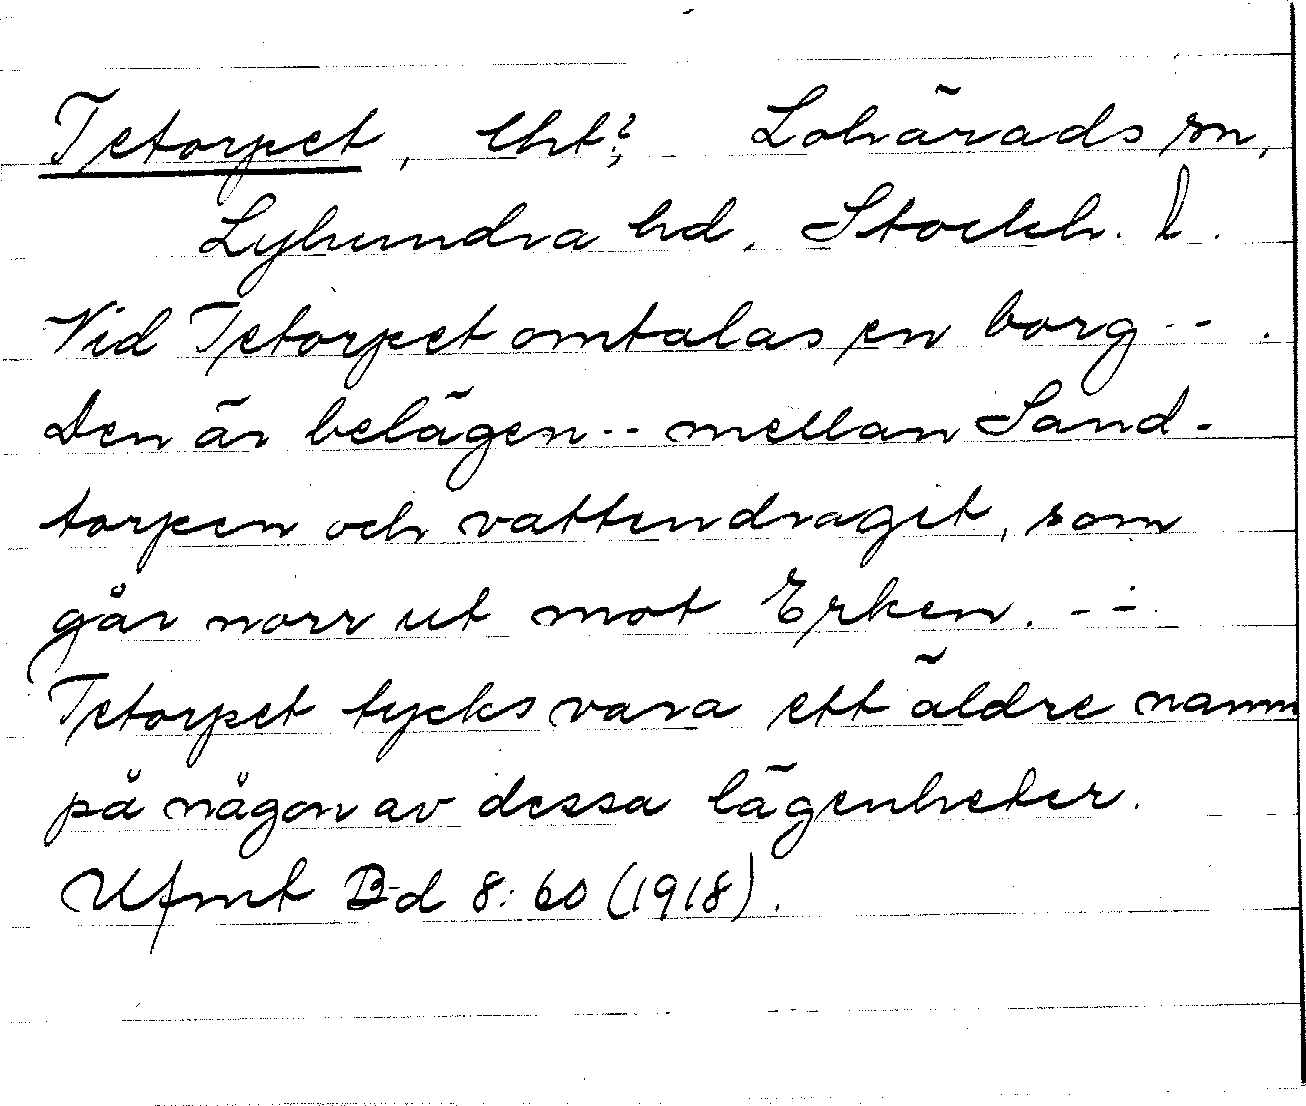 Tetorpet, lht?, Lohärads sn,
Lyhundra hd. Stockh. l.
Vid Tetorpet omtalas en borg -- .
Den är belägen -- mellan Sand-
torpen och vattendraget, som
går norr ut mot Erken. --
Tetorpet tycks vara ett äldre namn
på någon av dessa lägenheter.
Ufmt Bd 8: 60 (1918).